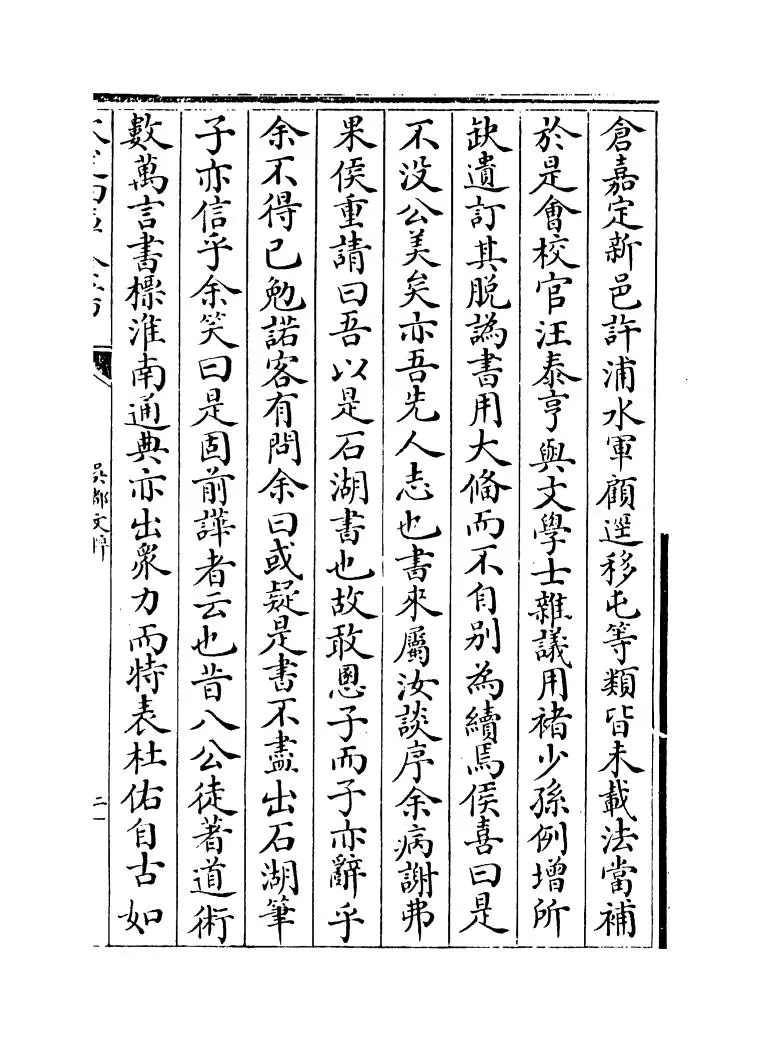 倉嘉定新邑許浦水軍顧逕移屯等類皆未載法當補
於是會校官汪泰亨與文學士雜議用褚少孫例增所
缺遺訂其脱譌書用大備而不自别為續焉侯喜曰是
不没公美矣亦吾先人志也書來屬汝談序余病謝弗
果侯重請曰吾以是石湖書也故敢慁子而子亦辭乎
余不得已勉諾客有問余曰或疑是書不盡出石湖筆
子亦信乎余笑曰是固前譁者云也昔八公徒著道術
數萬言書標淮南通典亦出衆力而特表杜佑自古如
吳都文粹